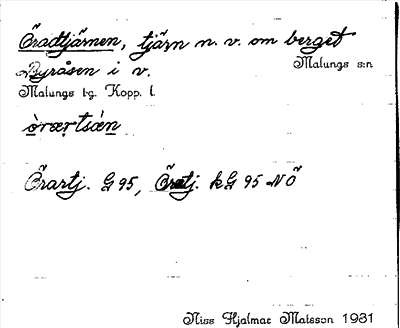 Öradtjärnen, tjärn n. v. om berget
Byråsen i v.
Malungs s:n
Malungs t-g. Kopp. l.
òrærtsán
Örartj. G 95, Öratj. kG 95 NÖ
Niss Hjalmar Matsson 1931